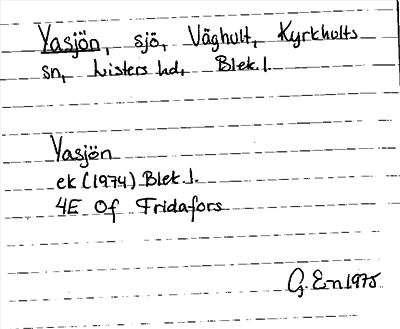 Yasjön, sjö, Våghult, Kyrkhults
sn, Listers hd, Blek. l.
Yasjön
ek (1974) Blek. l.
4E Of Fridafors
G. En 1975